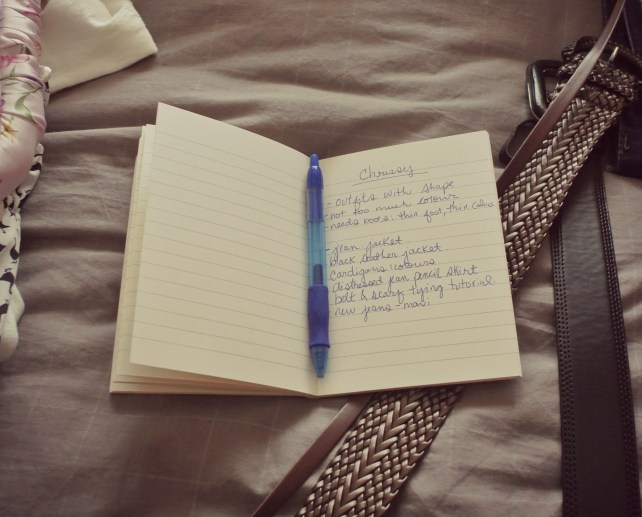 Chrissy
- outfits with shape
- not too much colour
- needs boots: thin foot, thin calves
- jean jacket
black leather jacket
cardigans: colours
distressed jean pencil skirt
belt & scarf tying tutorial
- new jeans - maxi